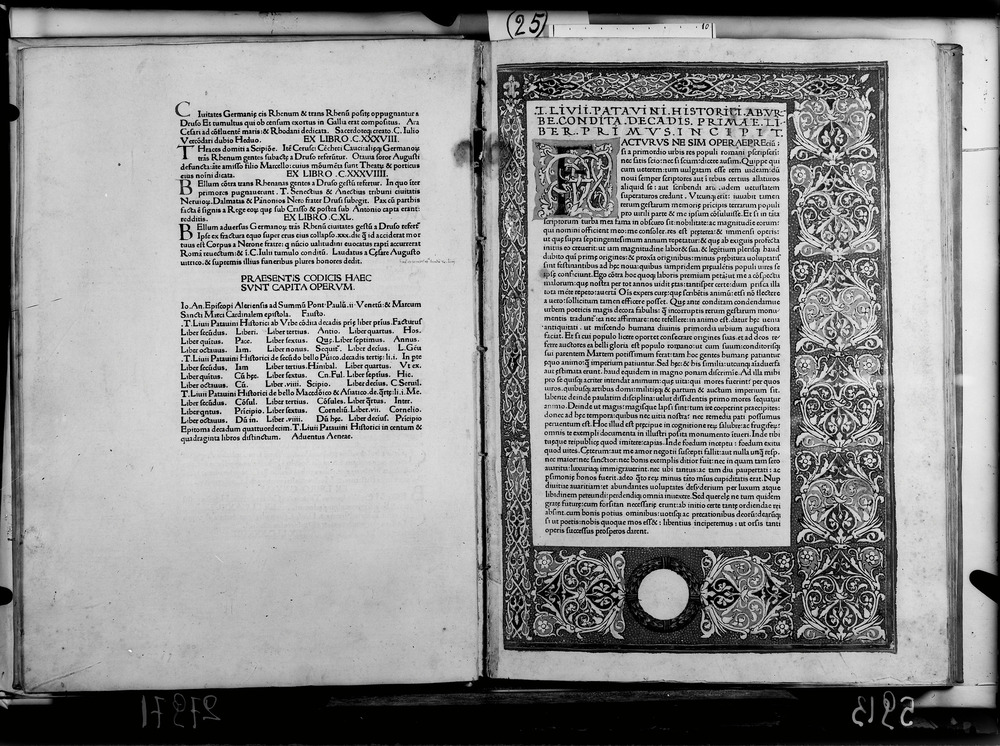 (25)
10
C Iuitates Germanię cis Rhenum & trans Rhenũ positę oppugnantur a
Druso Et tumultus qui ob censum exortus in Gallia erat compositus. Ara
Cesari ad cõfluentẽ maris: & Rhodani dedicata. Sacerdoteq; creato .C. Iulio
Vercõdari dubio Heduo. EX LIBRO .CXXXVIII.
T Hraces domiti a Scipiõe. Itẽ Cerusci
tras Rhenum gentes subactę a Druso referũtur. Octauia soror Augusti
defuncta: ãte amisso filio Marcello: cuius mõumẽta sunt Theatrũ & porticus
eius noĩni dicata. EX LIBRO .C.XXXVIIII.
B Ellum cõtra trans Rhenanas gentes a Druso gestũ refertur. In quo ĩter
primores pugnauerunt .T. Senectius & Anectius tribuni ciuitatis
Dalmatas & Pãnonios Nero frater Drusi subegit. Pax cũ parthis
facta ẽ signis a Rege eorum quę sub Crasso & postea sub Antonio capta erant:
redditis. EX LIBRO .C.XL.
B Ellum aduersus trãs Rhenũ ciuitates gestũ a Druso refert
Ipse ex fractura equo super crus eius collapso .xxx. die q̃ id acciderat mor
tuus est Corpus a Nerone fratre: q nũcio ualitudinis euocatus rapti accurrerat
Romã reuectum: & i .C. Iulii tumulo conditũ. Laudatus a Cęsare Augusto
uitrico. & supremis illius funeribus plures honores dedit.
PRAESENTIS CODICIS HAEC
SVNT CAPITA OPERVM.
Io. An. Episcopi Aleriensis ad Summũ Pont. Paulũ .ii. Venetũ: & Marcum
Sancti Marci Cardinalem epistola. Fausto.
.T. Liuii Pataui Historici ab Vrbe cõdita decadis primę liber prius. Facturus
Liber secũdus. Liberi. Liber tertius. Antio. Liber quartus. Hos.
Liber quĩtus. Pace. Liber sextus. Quę. Liber septimus. Annus.
Liber octauus. Iam. Liber nonus. Sequit̃. Liber decius. L. Gẽu
.T. Liuii Pataui Historici de secũdo bello Pũico. decadis tertię: li. i. In pte
Liber secũdus. Iam Liber tertius. Hãnibal. Liber quartus. Vt ex.
Liber quĩtus. Cũ hęc. Liber sextus. Cn. Ful. Liber septĩus. Hic.
Liber octauus. Cũ. Liber .viiii. Scipio. Liber decius. C. Seruil.
T. Liuii Pataui Historici de bello Macedõico & Asiatico. de q̃rtę: li. i. Me.
Liber secũdus. Cõsul. Liber tertius. Cõsules. Liber q̃rtus. Inter.
Liber quĩtus. Prĩcipio. Liber sextus. Corneliũ. Liber .vii. Cornelio.
Liber octauus. Dũ in. Liber .viiii. Dũ hęc. Liber decius. Prĩcipio
Epitoma decadum quattuordecim. T. Liuii Pataui Historici in centum &
quadraginta libros distinctum. Aduentus Aeneae.
.T. LIVII. PATAVINI. HISTORICI. AB. VR
BE. CONDITA. DECADIS. PRIMAE. LI
BER. PRIMVS. INCIPIT.
F ACTVRVS NE SIM OPERAE PRECIŨ:
si a primordio urbis res populi romani pscripserĩ:
nec satis scio: nec si sciam: dicere ausim. Quippe qui
cum ueterem: tum uulgatam esse rem uideam: dũ
noui semper scriptores aut ĩ rebus certius allaturos
aliquid se: aut scribendi arte rudem uetustatem
superaturos credunt. Vtcunq; erit: iuuabit tamen
rerum gestarum memorię principis terrarum populi
pro uirili parte & me ipsum cõsuluisse. Et si in tãta
scriptorum turba mea fama in obscuro sit: nobilitate: ac magnitudie eorum:
qui nomini officient meo: me consoler. res est pręterea: & immensi operis:
ut quę supra septingentesimum annum repetatur: & quę ab exiguis profecta
initiis eo creuerit: ut iam magnitudine laboret sua. & legentium plerisq; haud
dubito qui prime origines: & proxia originibus: minus prębitura uoluptatis
sint festinantibus ad hęc noua: quibus iampridem pręualẽtis populi uires se
ipsę conficiunt. Ego cõtra hoc quoq; laboris premium petã: ut me a cõspectu
malorum: que nostra per tot annos uidit ętas: tantisper certe: dum prisca illa
tota mẽte repeto: auertã Oĩs expers curę: que scribẽtis animũ: etsi nõ flectere
a uero: sollicitum tamen efficere posset. Quę ante conditam condendamue
urbem poeticis magis decora fabulis: q̃ incorruptis rerum gestarum monu
mentis tradunt: ea nec affirmare: nec refellere: in animo est. datur hęc uenia
antiquitati. ut miscendo humana diuinis primordia urbium augustiora
faciat. Et si cui populo licere oportet consecrare origines suas. et ad deos re
ferre auctores ea belli gloria est populo romano: ut cum suum: conditorisq;
sui parentem Martem potissimum ferat: tam hoc gentes humanę patiantur
equo animo: q̃ imperium patiuntur. Sed hęc: & his similia: utcunq; aiaduersa
aut estimata erunt. haud equidem in magno ponam discrimie. Ad illa mihi
pro se quisq; acriter intendat animum: que uita: qui mores fuerint: per quos
uiros. quibusq; artibus domi: militięq; & partum & auctum imperium sit.
labente deinde paulatim disciplina: uelut dissidentis primo mores sequatur
animo. Deinde ut magis: magisque lapsi sint: tum ire coeperint pręcipites:
donec ad hęc tempora: quibus nec uitia nostra: nec remedia pati possumus
peruentum est. Hoc illud est pręcipue in cognitione rerum salubre: ac frugiferũ:
omnis te exempli documenta in illustri posita monumento ĩtueri. Inde tibi
tuęque reipublicę: quod imitere: capias. Inde foedum inceptu: foedum exitu
quod uites. Cęterum: aut me amor negotii suscepti fallit: aut nulla unq̃ resp.
nec maior: nec sanctior: nec bonis exemplis ditior fuit: nec in quam tam sero
auaritia: luxuriaq; immigrauerint: nec ubi tantus: ac tam diu paupertati: ac
psimonię honos fuerit. adeo q̃to rerum minus tãto mĩus cupiditatis erat. Nup
diuitię auaritiam: et abundantes uoluptates desiderium per luxum atque
libidinem pereundi: perdendiq; omnia inuexere. Sed querelę ne tum quidem
gratę futurę: cum forsitan necessarię erunt: ab initio certe tantę ordiendae rei
absint. cum bonis potius ominibus: uotisq; ac pręcationibus deorũ: dearũq;
si ut poetis: nobis quoque mos esset: libentius inciperemus: ut orsis tanti
operis successus prosperos darent.
21971
5913